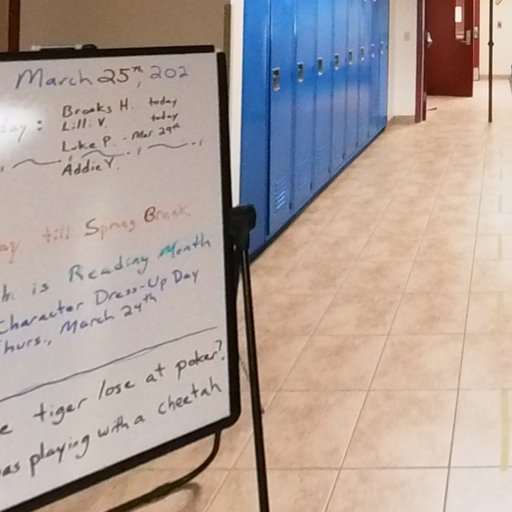 March 25th, 202
day: Brooks H. today
Lilli V. today
Luke P. - Mar 29th
Addie Y.
ay till Spring Break
h is Reading Month
Character Dress-Up Day
hurs., March 24th
e tiger lose at poker?
as playing with a cheetah